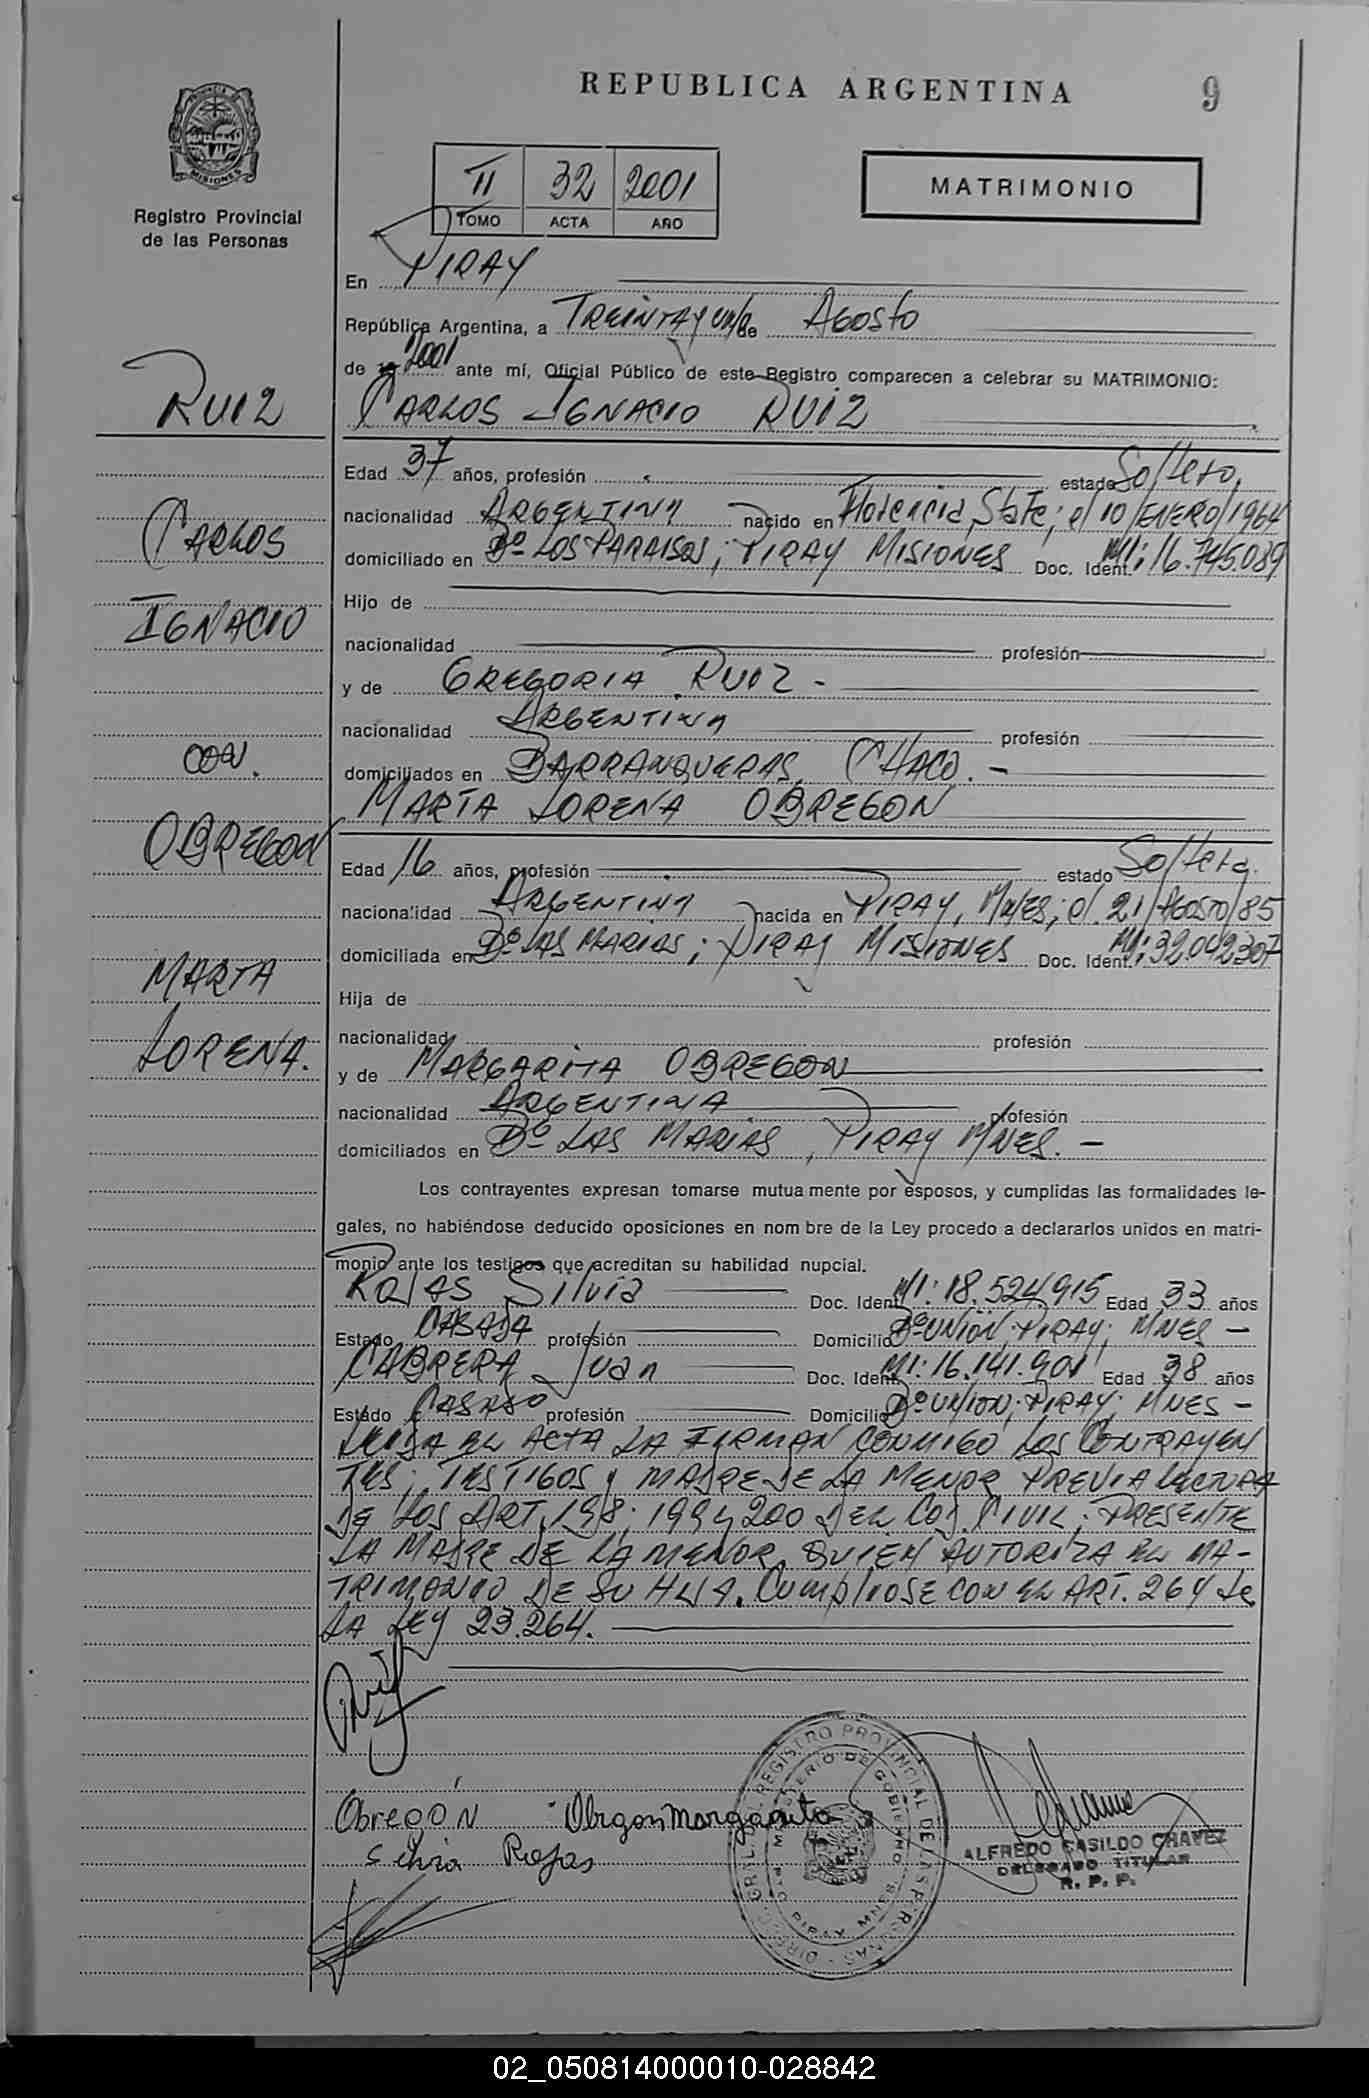 REPUBLICA ARGENTINA
9
MISIONES
Registro Provincial
de las Personas
II 32 2001
TOMO ACTA AÑO
MATRIMONIO
En PIRAY
República Argentina, a TREINTA Y UNO de AGOSTO
de 2001 ante mí, Oficial Público de este Registro comparecen a celebrar su MATRIMONIO:
RUIZ
CARLOS IGNACIO RUIZ
Edad 37 años, profesión estado Soltero,
CARLOS
nacionalidad ARGENTINA nacido en Florencia, StaFe; el 10/ENERO/1964
domiciliado en Bº LOS PARAISOS; PIRAY MISIONES Doc. Ident. MI: 16.745.089
IGNACIO
Hijo de
nacionalidad profesión
y de GREGORIA RUIZ -
nacionalidad ARGENTINA profesión
CON.
domiciliados en BARRANQUERAS, CHACO. -
MARTA LORENA OBREGON
OBREGON
Edad 16 años, profesión estado Soltera.
nacionalidad ARGENTINA nacida en PIRAY, Mnes; el 21/AGOSTO/85
domiciliada en Bº LAS MARIAS; PIRAY MISIONES Doc. Ident. MI: 32.042.307
MARTA
Hija de
LORENA.
nacionalidad profesión
y de MARGARITA OBREGON
nacionalidad ARGENTINA profesión
domiciliados en Bº LAS MARIAS, PIRAY MNES. -
Los contrayentes expresan tomarse mutua mente por esposos, y cumplidas las formalidades le-
gales, no habiéndose deducido oposiciones en nom bre de la Ley procedo a declararlos unidos en matri-
monio ante los testigos que acreditan su habilidad nupcial.
ROJAS Silvia Doc. Ident. MI: 18.524.915 Edad 33 años
Estado CASADA profesión Domicilio Bº UNIÓN; PIRAY; MNES -
CABRERA Juan Doc. Ident. MI: 16.141.901 Edad 38 años
Estado CASADO profesión Domicilio Bº UNION; PIRAY; MNES -
LEIDA EL ACTA LA FIRMAN CONMIGO LOS CONTRAYEN
TES; TESTIGOS Y MADRE DE LA MENOR PREVIA LECTURA
DE LOS ART. 198; 199 y 200 DEL COD. CIVIL. PRESENTE
LA MADRE DE LA MENOR QUIEN AUTORIZA EL MA-
TRIMONIO DE SU HIJA. CUMPLIOSE CON EL ART. 264 de
LA LEY 23.264.
Obregón Obrgon Margarita
Silvia Rojas
DIREC. GRAL. DEL REGISTRO PROVINCIAL DE LAS PERSONAS
MINISTERIO DE GOBIERNO
PTO PIRAY MNES.
ALFREDO CASILDO CHAVEZ
DELEGADO TITULAR
R. P. P.
02_050814000010-028842